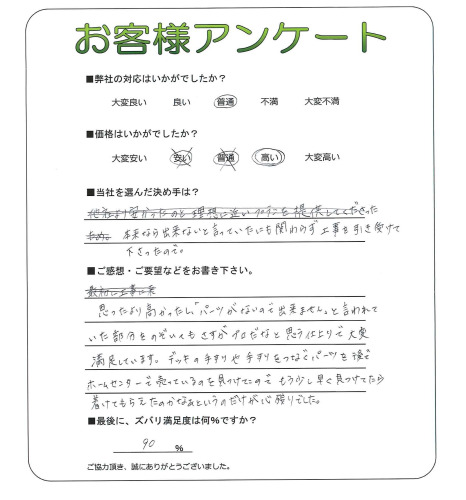 お客様アンケート
■弊社の対応はいかがでしたか？
大変良い 良い 普通 不満 大変不満
■価格はいかがでしたか？
大変安い 安い 普通 高い 大変高い
■当社を選んだ決め手は？
他社より安かったのと理想に近いプランを提供してくださった
ため。 本来なら出来ないと言っていたにも関わらず工事を引き受けて
下さったので。
■ご感想・ご要望などをお書き下さい。
最初に工事に来
思ったより高かったし「パーツがないので出来ません」と言われて
いた部分をのぞいてもさすがプロだなと思う仕上りで大変
満足しています。デッキの手すりや手すりをつなぐパーツを後で
ホームセンターで売っているのを見つけたので もう少し早く見つけてたら
着けてもらえたのかなぁというのだけが心残りでした。
■最後に、ズバリ満足度は何%ですか？
90 %
ご協力頂き、誠にありがとうございました。